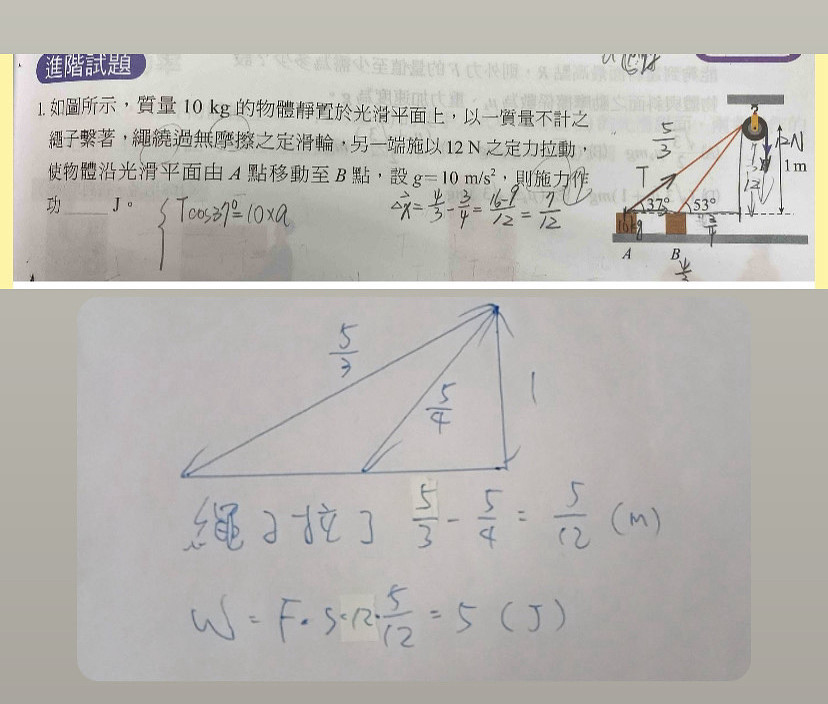 進階試題
1. 如圖所示，質量 10 kg 的物體靜置於光滑平面上，以一質量不計之
繩子繫著，繩繞過無摩擦之定滑輪，另一端施以 12 N 之定力拉動，
使物體沿光滑平面由 A 點移動至 B 點，設 g＝10 m/s²，則施力作
功____J。
Tcos37°=10×a
Δx=4/3-3/4=16-9/12=7/12
5/3
T
12N
1 m
37°
53°
10kg
3/4
A
B
4/3
5/3
5/4
1
繩子拉了 5/3-5/4=5/12 (m)
W=F·S=12·5/12=5 (J)